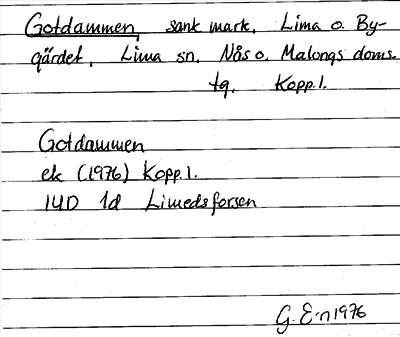 Gotdammen, sank mark, Lima o. By-
gärdet, Lima sn. Nås o. Malungs doms.
tg. Kopp. l.
Gotdammen
ek (1976) Kopp. l.
14D 1d Limedsforsen
G. E-n 1976